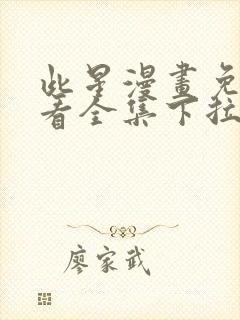 此星漫畫免
看全集下拉
廖家武